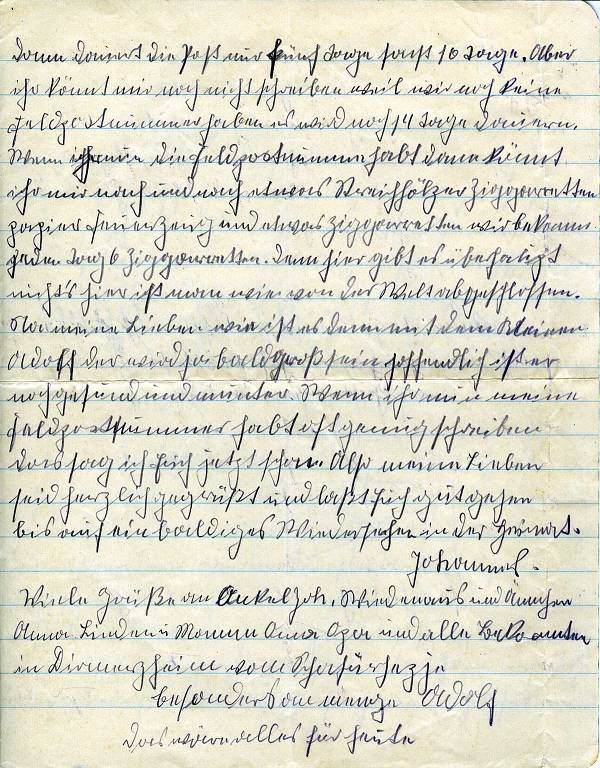 Dann dauert die Post nur fünf Tage sonst 10 Tage. Aber
ihr könnt mir noch nicht schreiben weil wir noch keine
Feldpostnummer haben es wird noch 14 Tage dauern.
Wenn ihr nun die Feldpostnumme habt dann könnt
ihr mir nach und nach etwas Streichhölzer Ziggarretten
papier Feuerzeug und etwas Ziggarretten wir bekomm
jeden Tag 6 Ziggarretten. Denn hier gibt es überhaupt
nichts hier ist man wie von der Welt abgeschlossen.
Na meine Lieben wie ist es denn mit dem Kleinen
Adolf der wird ja bald groß sein hoffendlich ist er
noch gesund und munter. Wenn ihr nun meine
Feldpostnummer habt oft genug schreiben
das sag ich Euch jetzt schon. Also meine Lieben
seid herzlich gegrüßt und laßt Euch gut gehen
bis auf ein baldiges Wiedersehen in der Heimat.
Johannes.
Viele Grüße an Onkel Joh. und Ännchen
Anna Linden u Mamm Oma Opa und alle Bekannten
in Dirmerzheim vom
besonders an Adolf
Das wäre alles für heute